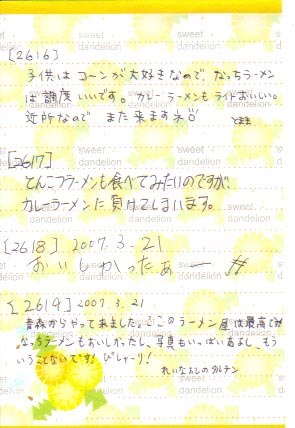 sweet
dandelion
[2616]
子供はコーンが大好きなので、なっちラーメン
は調度いいです。カレーラーメンもライトおいしい。
近所なので また来ますネ
[2617]
とんこつラーメンも食べてみたいのですが、
カレーラーメンに負けてしまいます。
[2618] 2007.3.21
おいしかったぁー
[2619] 2007.3.21
青森からやって来ました。ここのラーメン屋は最高です
なっちラーメンもおいしかったし、写真もいっぱいあるし、もう
いうことないです! ぴしゃーり!
れいなおしの